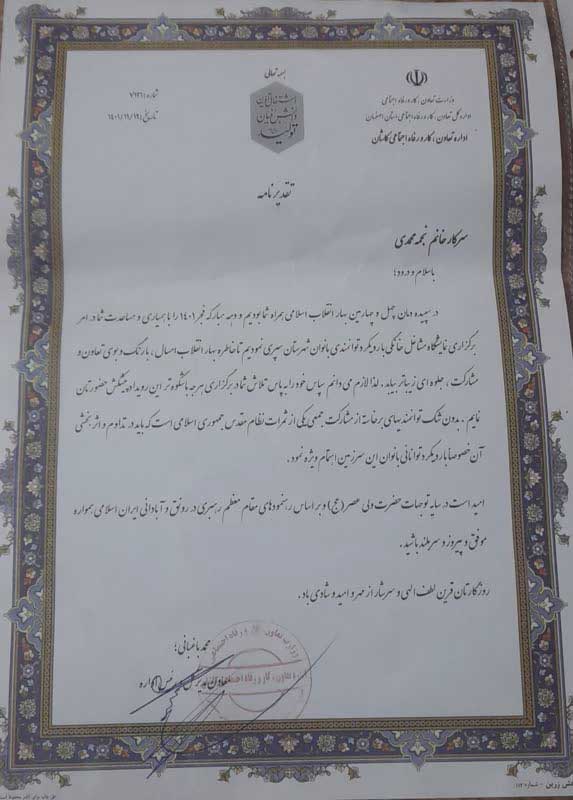 بسمه تعالی
شماره: ۷۱۳۶۱
تاریخ: ۱۴۰۱/۱۱/۱۹
وزارت تعاون، کار و رفاه اجتماعی
اداره کل تعاون، کار و رفاه اجتماعی استان اصفهان
اداره تعاون، کار و رفاه اجتماعی کاشان
تولید
دانش بنیان
اشتغال آفرین
تقدیرنامه
سرکار خانم نجمه محمدی
با سلام و درود؛
در سپیده دمان چهل و چهارمین بهار انقلاب اسلامی همراه شما بودیم و دهه مبارکه فجر ۱۴۰۱ را با همیاری و مساعدت شما در امر
برگزاری نمایشگاه مشاغل خانگی با رویکرد توانمندی بانوان شهرستان سپری نمودیم تا خاطره بهار انقلاب امسال، با رنگ و بوی تعاون و
مشارکت، جلوه ای زیباتر بیابد. لذا لازم می دانم سپاس خود را به پاس تلاش شما در برگزاری هرچه باشکوه تر این رویداد، پیشکش حضورتان
نمایم. بدون شک توانمندیهای برخاسته از مشارکت جمعی یکی از ثمرات نظام مقدس جمهوری اسلامی است که باید در تداوم و اثربخشی
آن خصوصا با رویکرد توانائی بانوان این سرزمین اهتمام ویژه نمود.
امید است در سایه توجهات حضرت ولی عصر (عج) و بر اساس رهنمودهای مقام معظم رهبری در رونق و آبادانی ایران اسلامی همواره
موفق و پیروز و سربلند باشید.
روزگارتان قرین لطف الهی و سرشار از مهر و امید و شادی باد.
محمد باغبانی؛
معاون مدیر کل و رئیس اداره